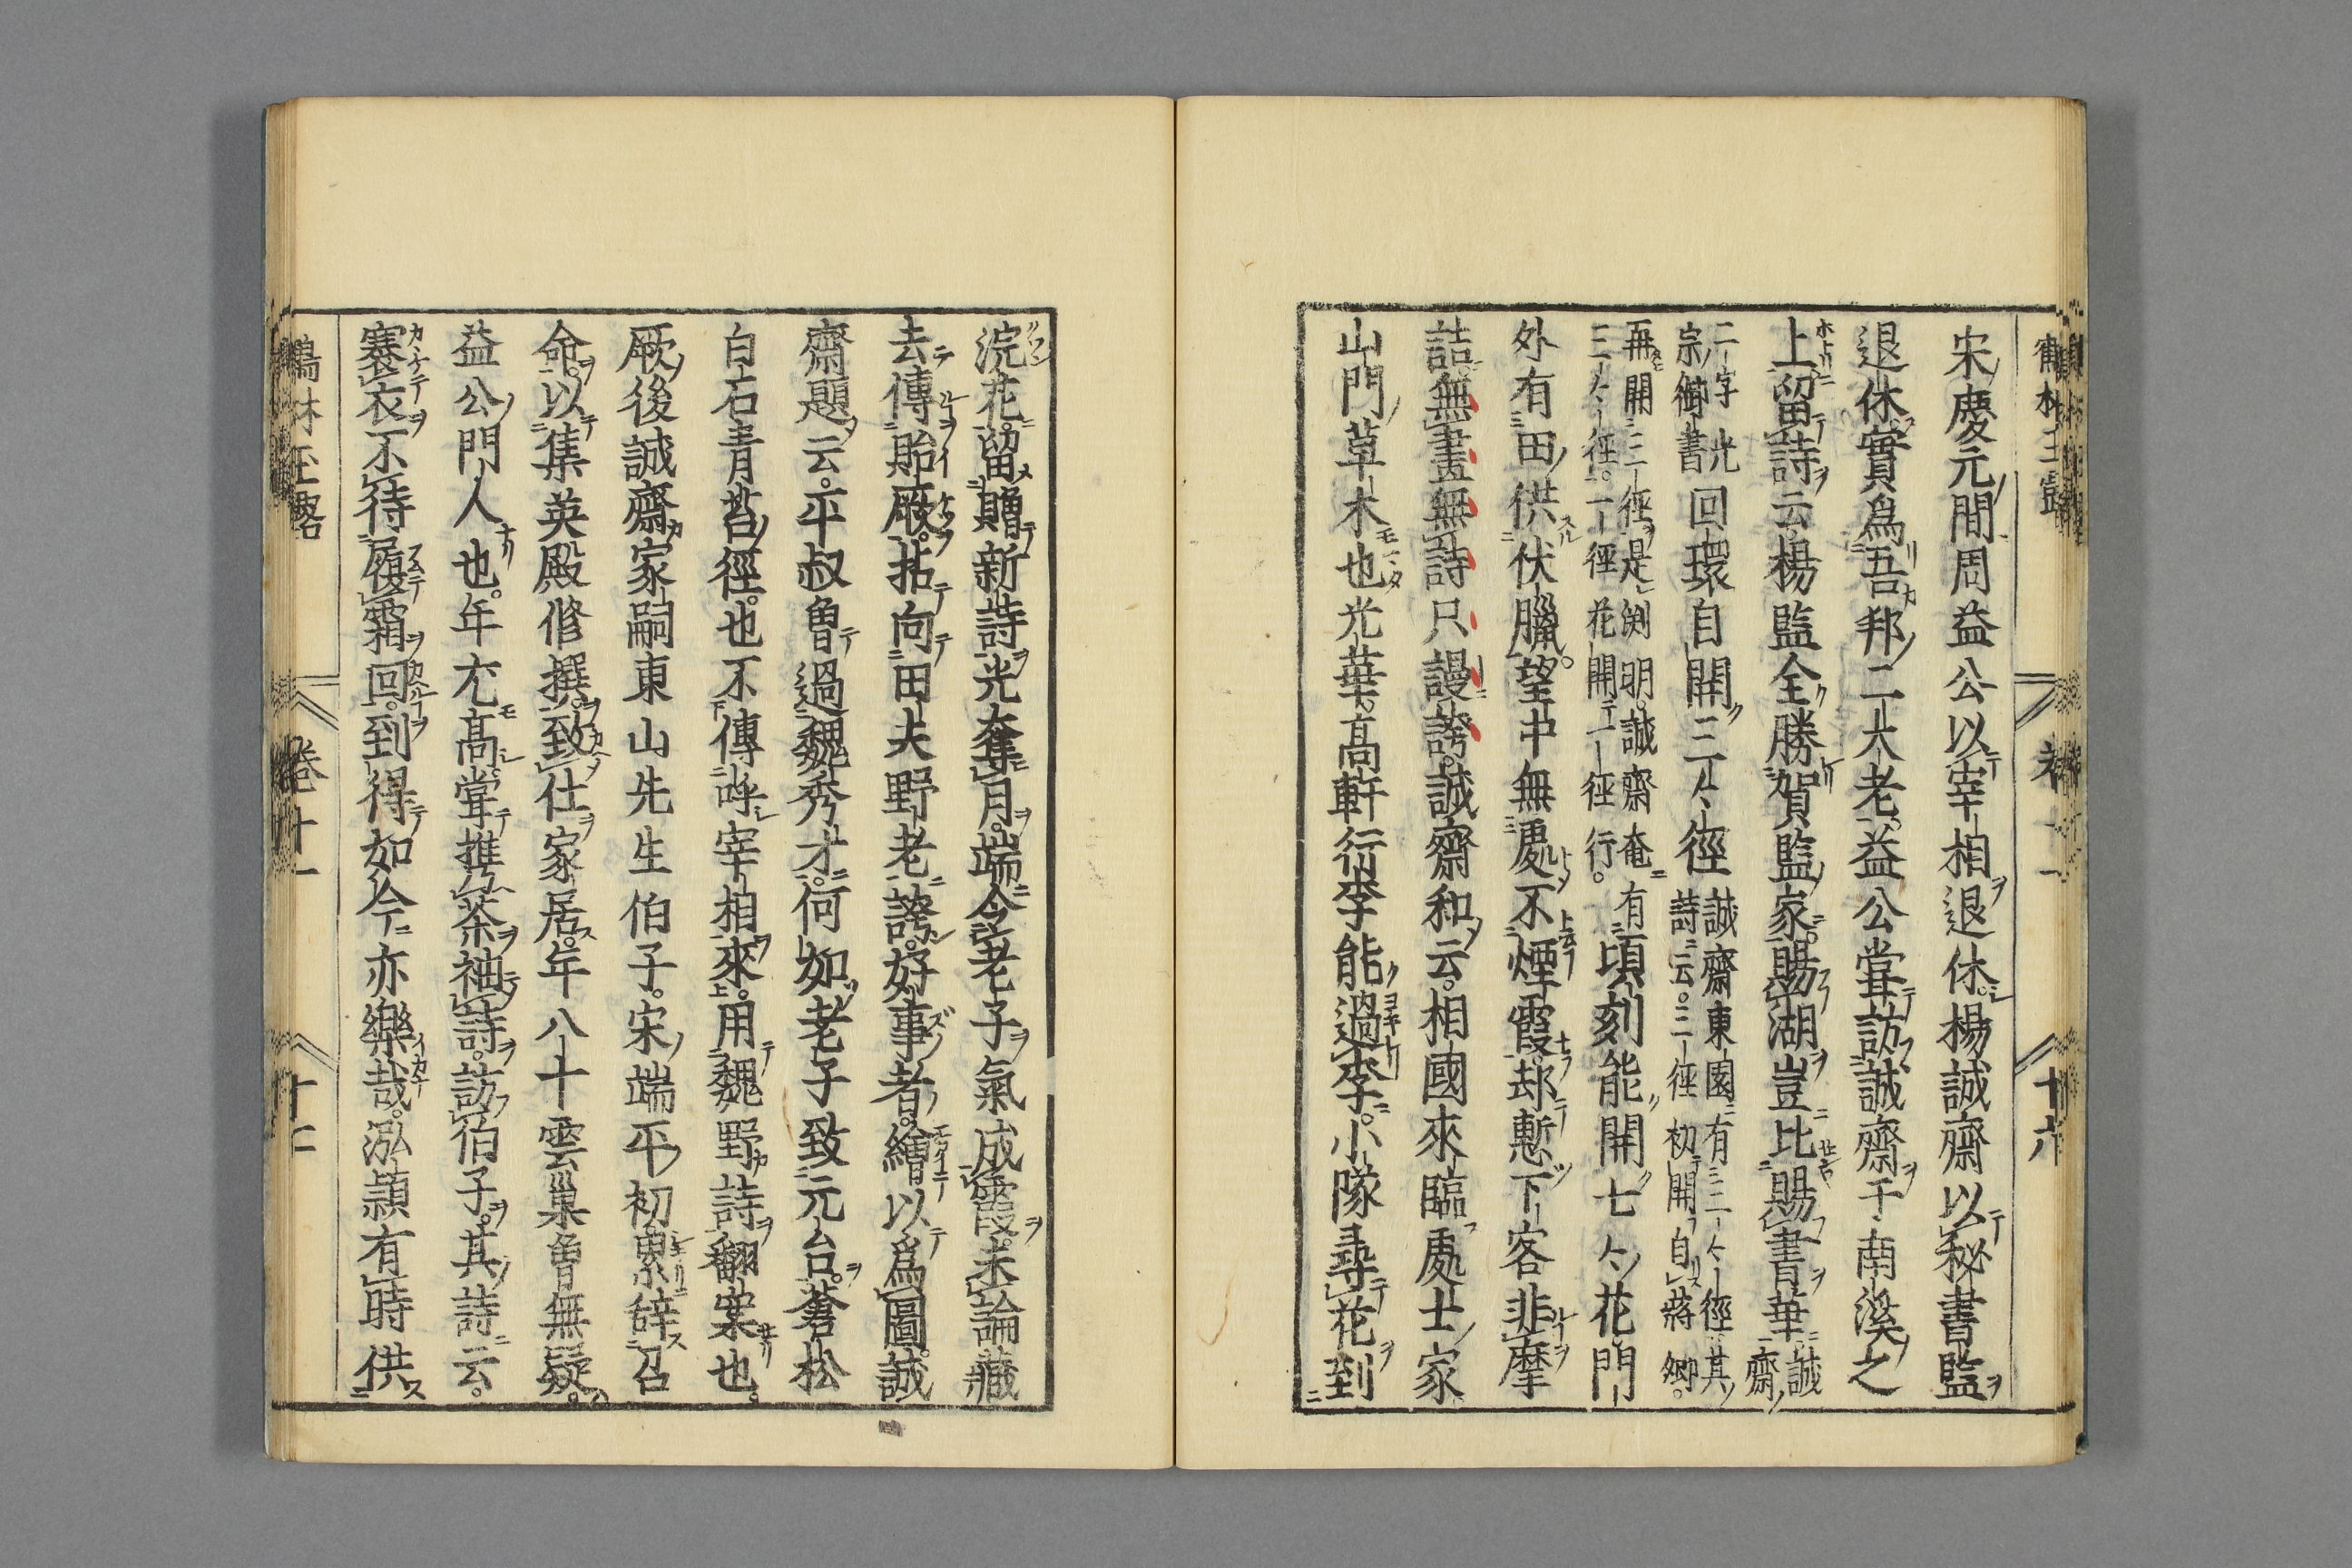 宋慶元間周益公以宰相退休。楊誠齋以秘書監
退休實爲吾邦二大老。益公甞訪誠齋于南溪之
上留詩云楊監全勝賀監家。賜湖豈比賜書華誠齋
二字光宗御書回環自開三々徑誠齋東園有三々徑其詩云。三徑初開自蔣卿。
再開三徑是渕明。誠齋奄有三々徑。一徑花開一徑行。頃刻能開七々花門
外有田供伏臘。望中無處不煙霞却慙下客非摩
詰無畫無詩只謾誇。誠齋和云。相國來臨處士家
山門草木也光華。高軒行李能過李。小隊尋花到
浣花。留贈新詩光奪月。端令老子氣成霞。未論藏
去傳貽厥。拈向田夫野老誇。好事者繪以爲圖。誠
齋題云。平叔曾過魏秀才。何如老子致元台。蒼松
白石青苔徑。也不傳呼宰相來。用魏野詩翻案也。
厥後誠齋家嗣東山先生伯子。宋端平初累辞召
命。以集英殿脩撰。致仕家居。年八十雲巢曾無疑。
益公門人也。年尤高。甞携茶袖詩。訪伯子。其詩云。
褰衣不待履霜回。到得如今亦樂哉。泓頴有時供
鶴林玉露
卷十一
十二